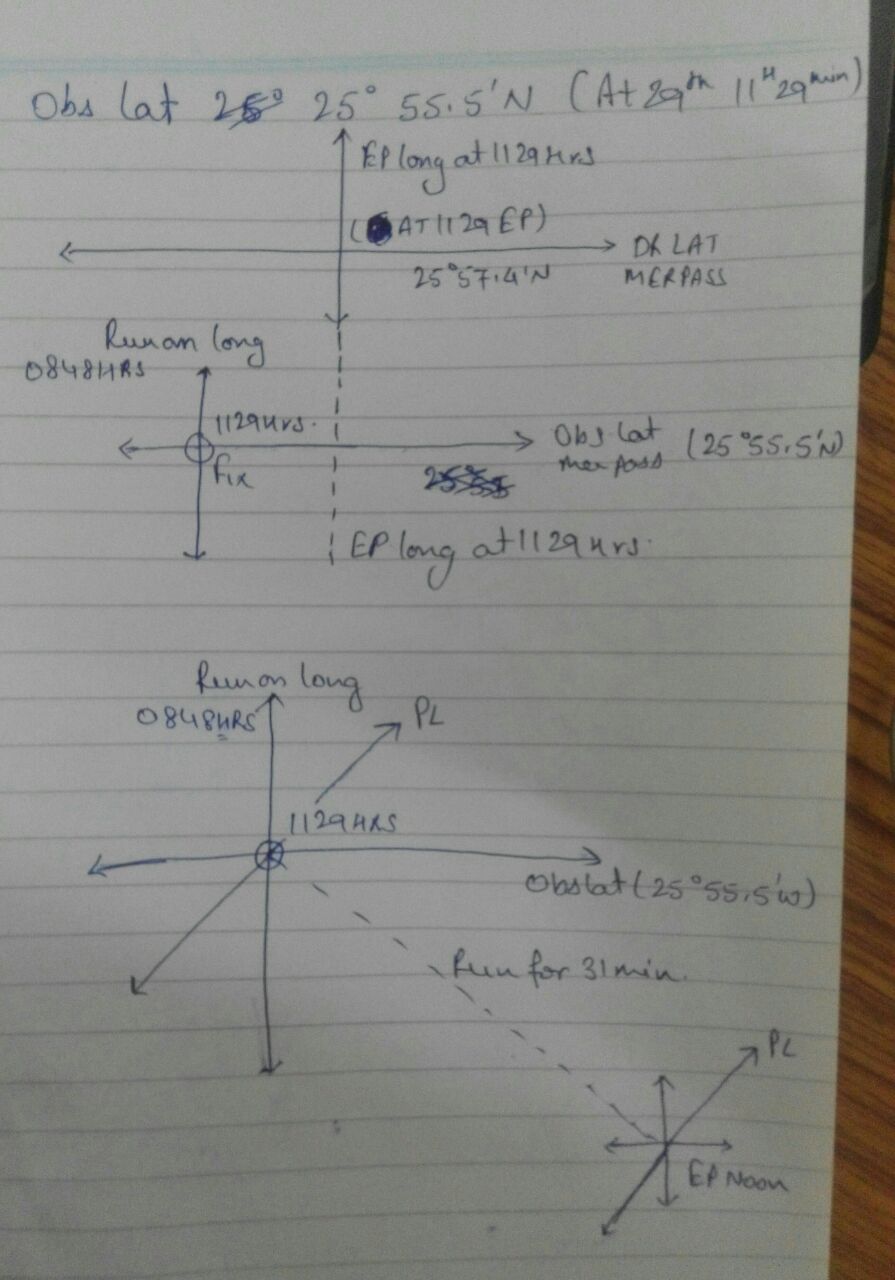 Obs lat 25° 55.5'N (At 29th 11H 29min)
EP long at 1129 Hrs
(AT 1129 EP)
DR LAT
MERPASS
25°57.4'N
Run on long
0848HRS
1129Hrs.
Fix
Obs lat
mer pass
(25°55.5'N)
EP long at 1129 Hrs.
Run on long
0848HRS
PL
1129HRS
Obs lat (25°55.5'N)
Run for 31 min.
PL
EP Noon